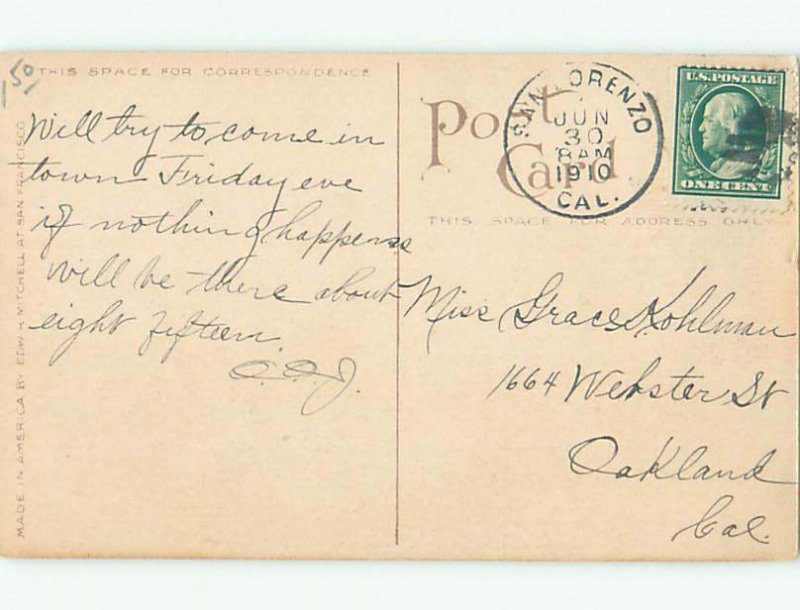 -50
THIS SPACE FOR CORRESPONDENCE
Will try to come in
town Friday eve
if nothing happens
will be there about
eight fifteen.
C.C.J.
MADE IN AMERICA BY EDW. H. MITCHELL AT SAN FRANCISCO
Post
Card.
SAN LORENZO
JUN
30
8 AM
1910
CAL.
U.S. POSTAGE
ONE CENT
THIS SPACE FOR ADDRESS ONLY
Miss Grace Kohlman
1664 Webster St
Oakland
Cal.